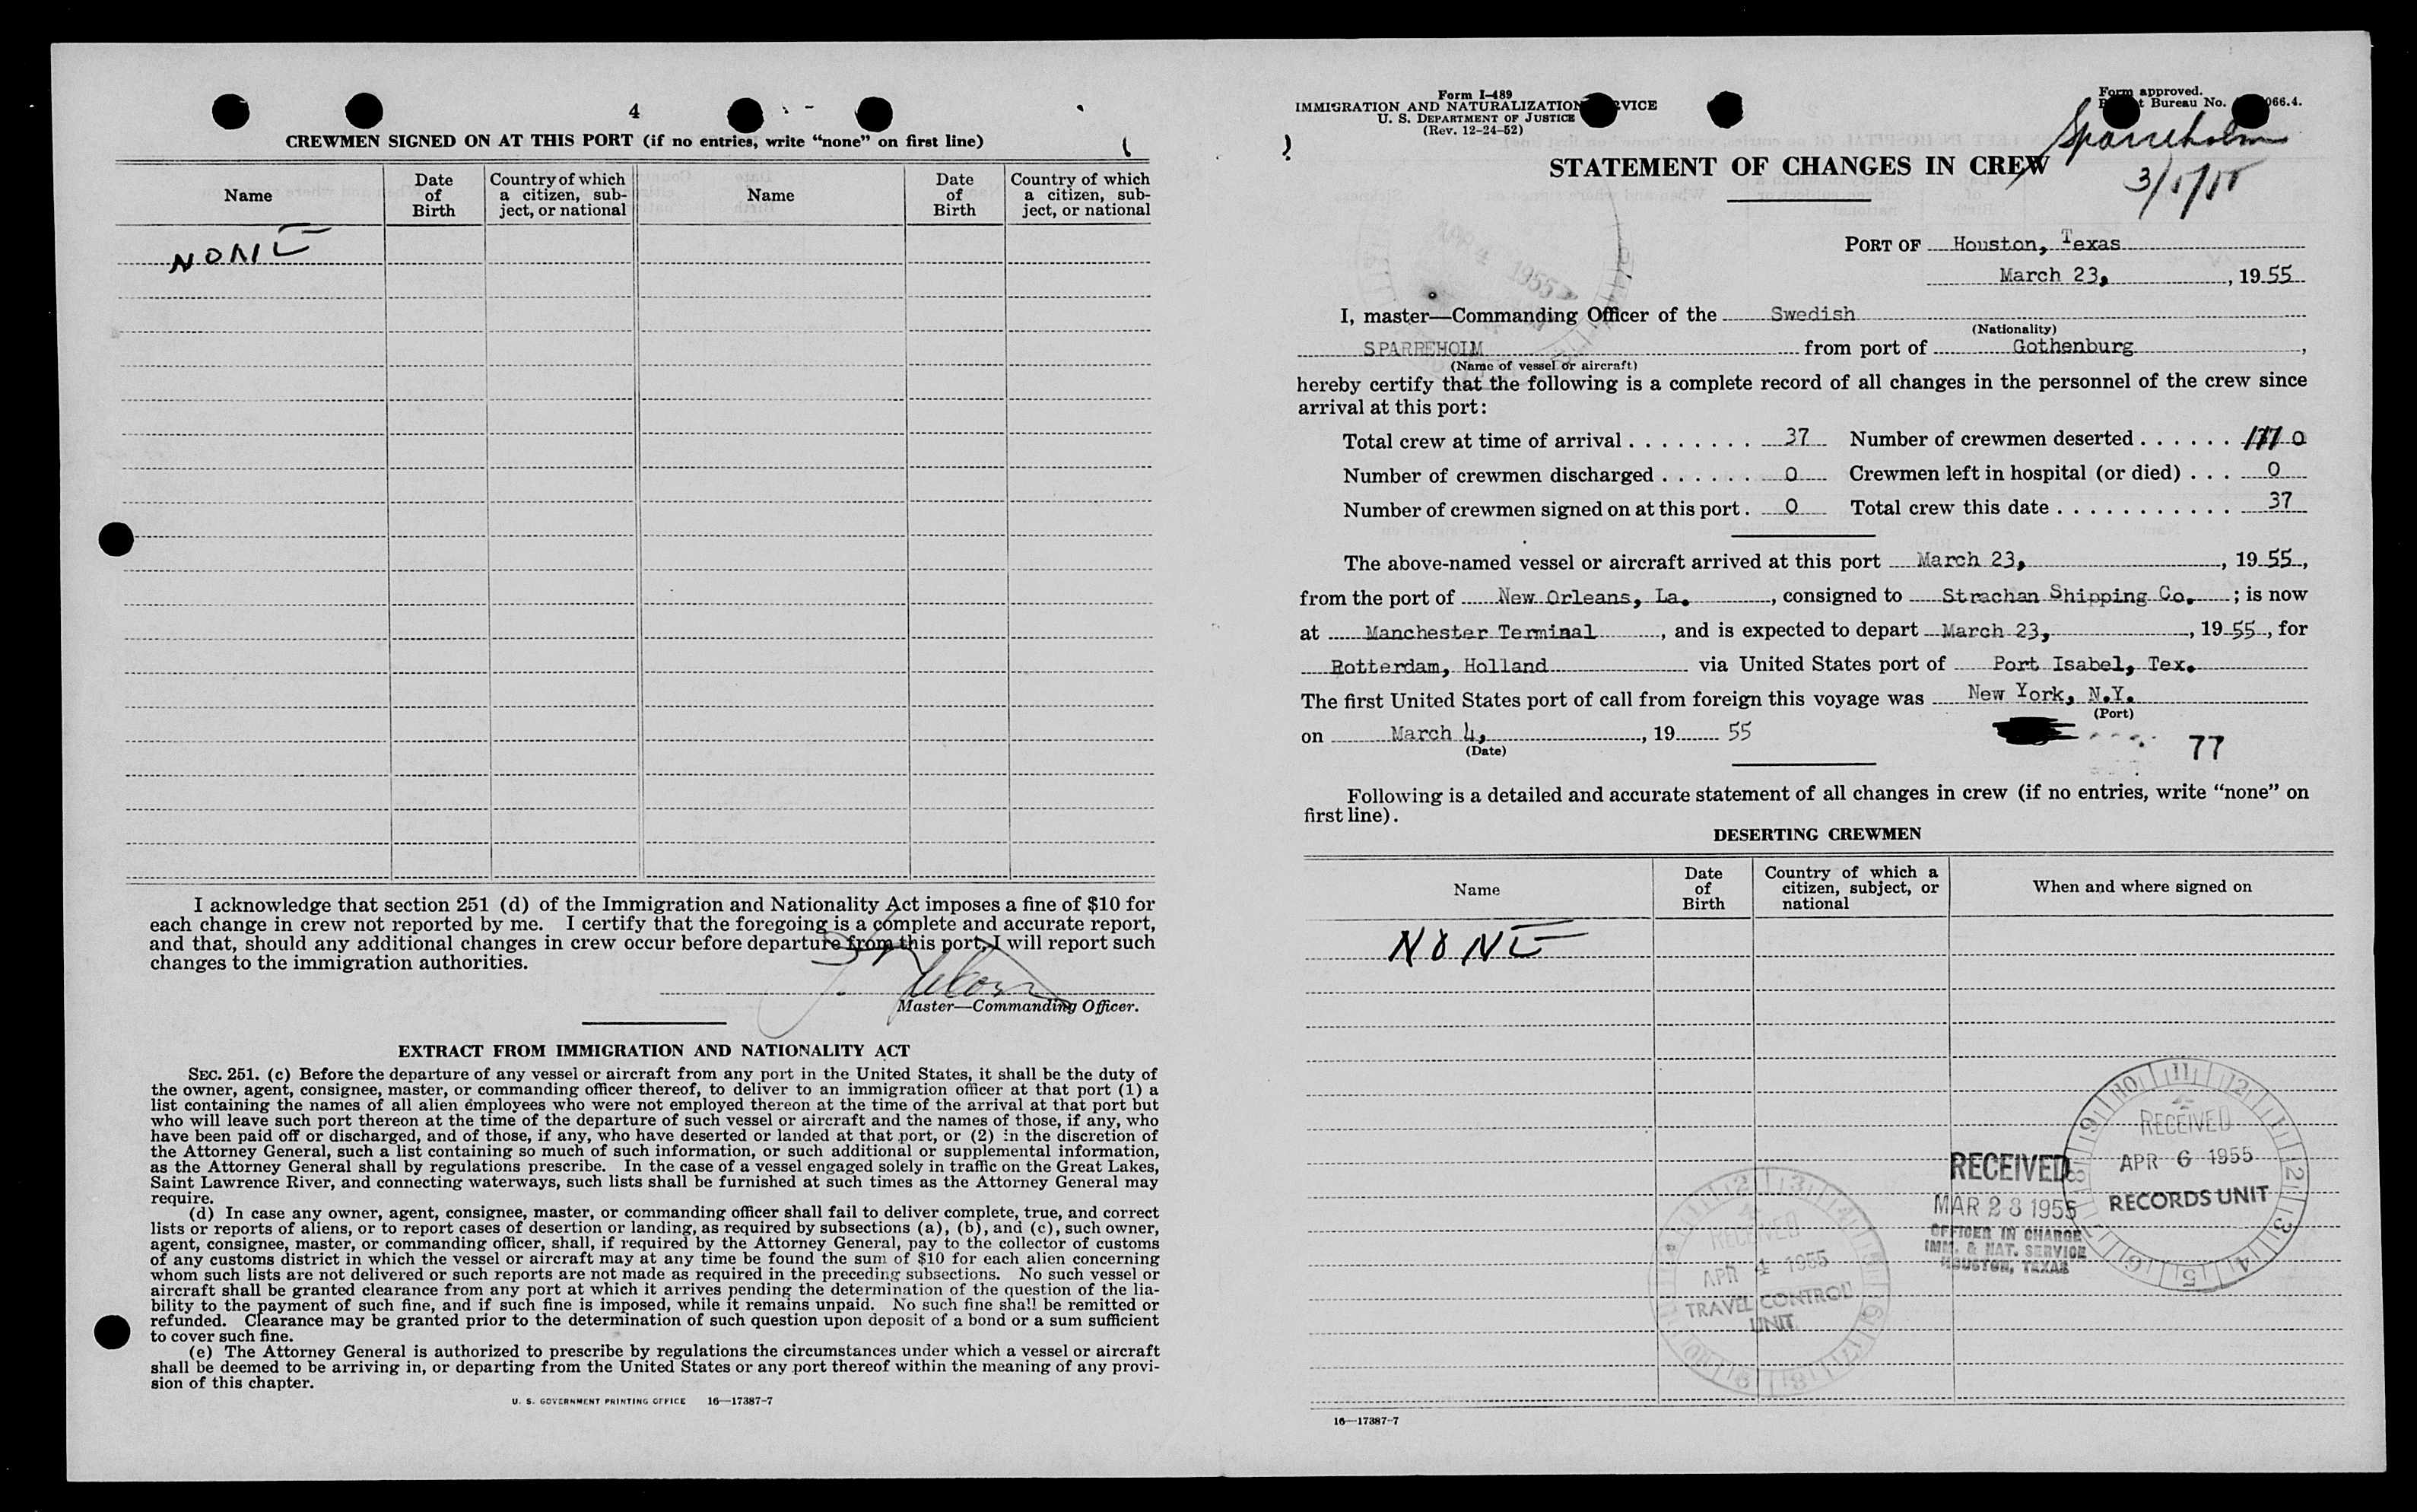 4
CREWMEN SIGNED ON AT THIS PORT (if no entries, write “none” on first line)
Name
Date of Birth
Country of which a citizen, sub-ject, or national
Name
Date of Birth
Country of which a citizen, sub-ject, or national
NONE
I acknowledge that section 251 (d) of the Immigration and Nationality Act imposes a fine of $10 for
each change in crew not reported by me. I certify that the foregoing is a complete and accurate report,
and that, should any additional changes in crew occur before departure from this port, I will report such
changes to the immigration authorities.
Master—Commanding Officer.
EXTRACT FROM IMMIGRATION AND NATIONALITY ACT
SEC. 251. (c) Before the departure of any vessel or aircraft from any port in the United States, it shall be the duty of
the owner, agent, consignee, master, or commanding officer thereof, to deliver to an immigration officer at that port (1) a
list containing the names of all alien employees who were not employed thereon at the time of the arrival at that port but
who will leave such port thereon at the time of the departure of such vessel or aircraft and the names of those, if any, who
have been paid off or discharged, and of those, if any, who have deserted or landed at that port, or (2) in the discretion of
the Attorney General, such a list containing so much of such information, or such additional or supplemental information,
as the Attorney General shall by regulations prescribe. In the case of a vessel engaged solely in traffic on the Great Lakes,
Saint Lawrence River, and connecting waterways, such lists shall be furnished at such times as the Attorney General may
require.
(d) In case any owner, agent, consignee, master, or commanding officer shall fail to deliver complete, true, and correct
lists or reports of aliens, or to report cases of desertion or landing, as required by subsections (a), (b), and (c), such owner,
agent, consignee, master, or commanding officer, shall, if required by the Attorney General, pay to the collector of customs
of any customs district in which the vessel or aircraft may at any time be found the sum of $10 for each alien concerning
whom such lists are not delivered or such reports are not made as required in the preceding subsections. No such vessel or
aircraft shall be granted clearance from any port at which it arrives pending the determination of the question of the lia-
bility to the payment of such fine, and if such fine is imposed, while it remains unpaid. No such fine shall be remitted or
refunded. Clearance may be granted prior to the determination of such question upon deposit of a bond or a sum sufficient
to cover such fine.
(e) The Attorney General is authorized to prescribe by regulations the circumstances under which a vessel or aircraft
shall be deemed to be arriving in, or departing from the United States or any port thereof within the meaning of any provi-
sion of this chapter.
U. S. GOVERNMENT PRINTING OFFICE 16—17387-7
Form I-489
IMMIGRATION AND NATURALIZATION
U. S. DEPARTMENT OF JUSTICE
(Rev. 12-24-52)
Form approved.
Bureau No. 066.4.
Sparreholm
STATEMENT OF CHANGES IN CREW
PORT OF Houston, Texas
March 23, , 19 55
APR 4 1955
I, master—Commanding Officer of the Swedish
(Nationality)
SPARREHOLM from port of Gothenburg ,
(Name of vessel or aircraft)
hereby certify that the following is a complete record of all changes in the personnel of the crew since
arrival at this port:
Total crew at time of arrival . . . . . . . . 37 Number of crewmen deserted . . . . . . 0
Number of crewmen discharged . . . . . . 0 Crewmen left in hospital (or died) . . . 0
Number of crewmen signed on at this port . 0 Total crew this date . . . . . . . . . . . 37
The above-named vessel or aircraft arrived at this port March 23, , 19 55 ,
from the port of New Orleans, La. , consigned to Strachan Shipping Co. ; is now
at Manchester Terminal , and is expected to depart March 23, , 19 55 , for
Rotterdam, Holland via United States port of Port Isabel, Tex.
The first United States port of call from foreign this voyage was New York, N.Y.
(Port)
on March 4, , 19 55
(Date)
77
Following is a detailed and accurate statement of all changes in crew (if no entries, write “none” on
first line).
DESERTING CREWMEN
Name
Date of Birth
Country of which a citizen, subject, or national
When and where signed on
NONE
RECEIVED
APR 6 1955
RECORDS UNIT
RECEIVED
MAR 28 1955
OFFICER IN CHARGE
IMM. & NAT. SERVICE
HOUSTON, TEXAS
RECEIVED
APR 4 1955
TRAVEL CONTROL
UNIT
16—17387-7